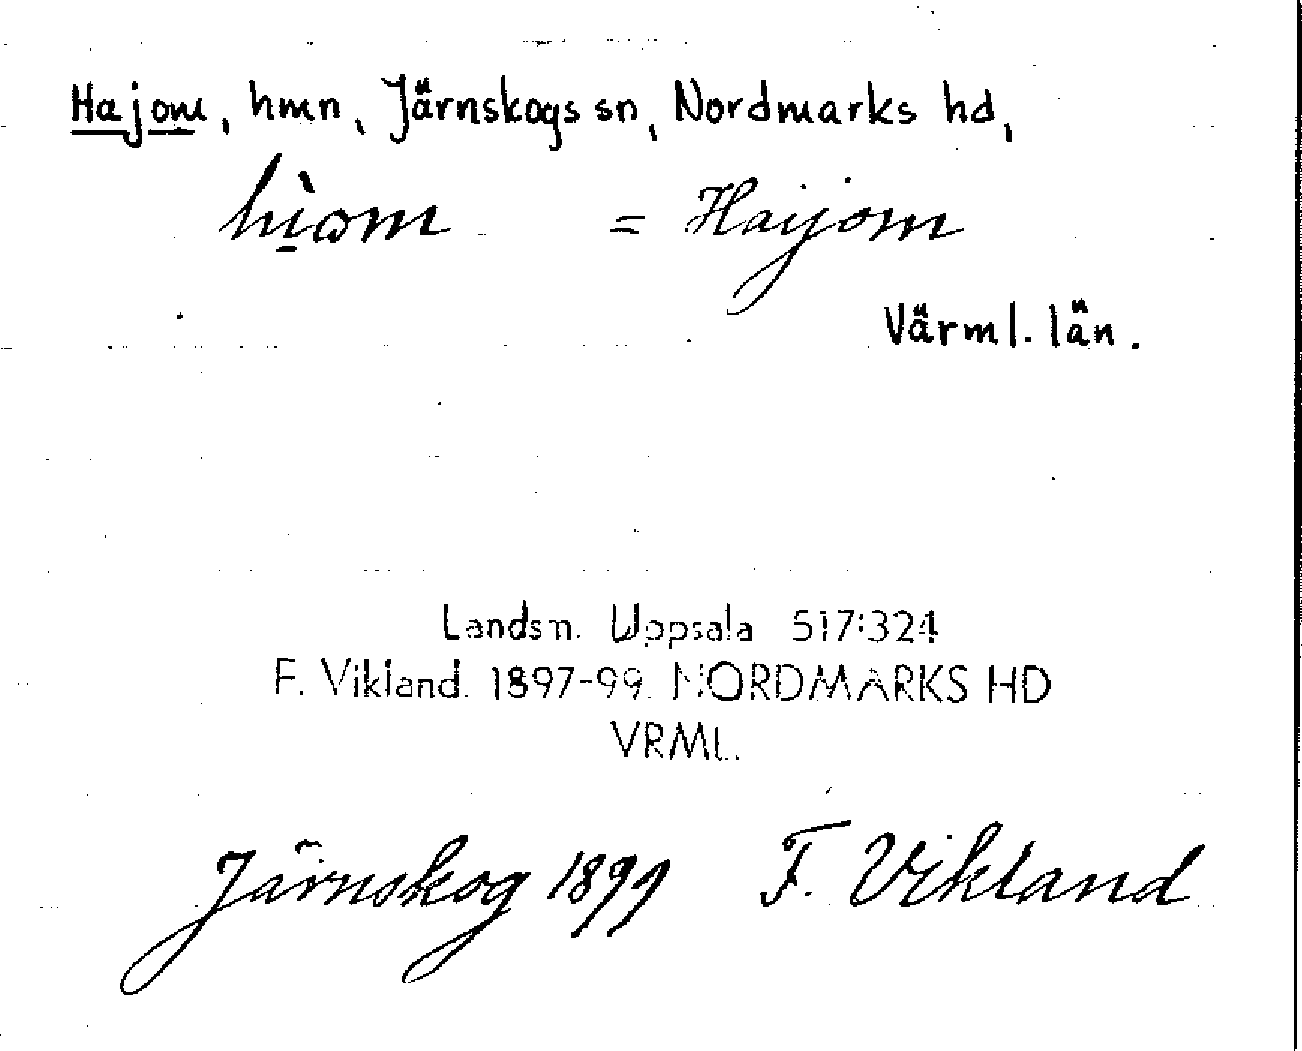 Hajom, hmn, Järnskogs sn, Nordmarks hd,
hì̱ωm = Haijom
Värml. län.
Landsm. Uppsala 517:324
F. Vikland. 1897-99. NORDMARKS HD
VRML.
Järnskog 1899 F. Vikland